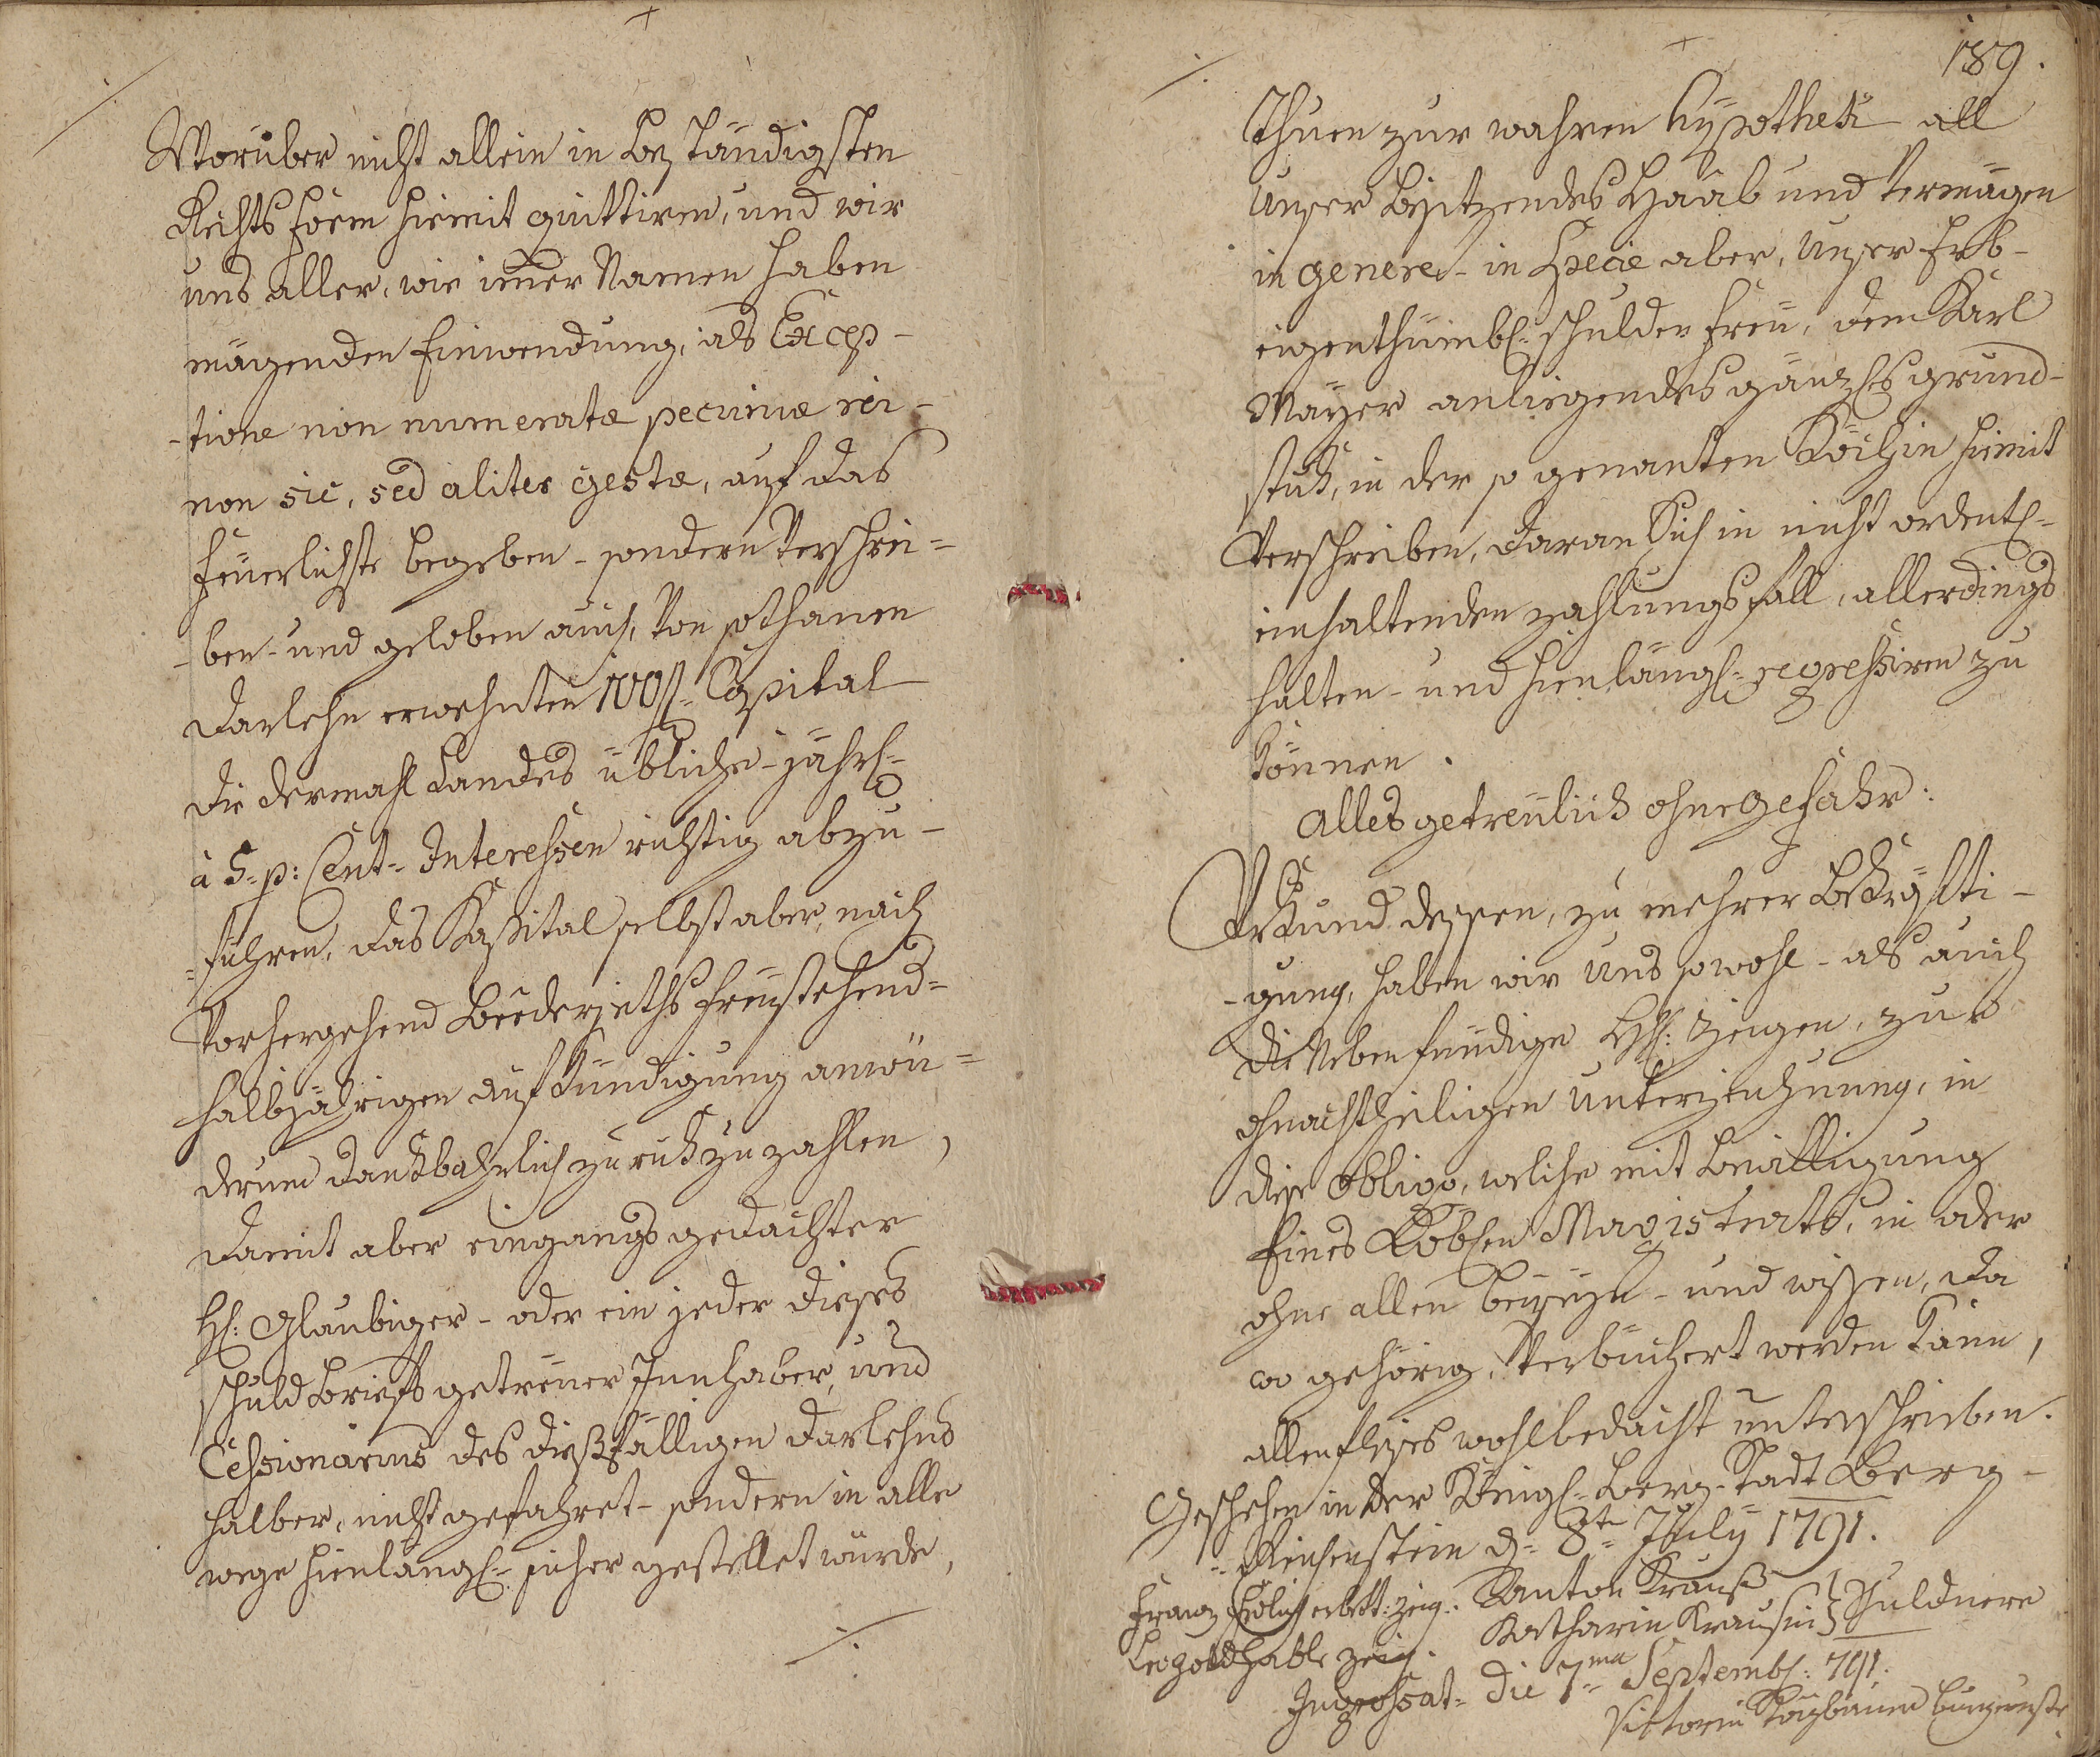 Worüber nicht allein in beständigsten
Rechts form hiemit quittiren, und wir
uns aller, wie imer Namen haben
mögenden Einwendung, als Excep-
-tione non numeratæ pecuniæ rei-
non sic, sed aliter gestæ, auf das
feüerlichste begeben - sondern verschrei=
-ben- und geloben auch, von sothanen
Darlehn erwehnten 100 fl= Capital
die dermahl Landes übliche- jährl=
à 5= p: Cent= Interessen richtig abzu-
=führen, das Kapital selbst aber, nach
vorhergehend beederseths freystehend=
halbjährigen aufkündigung anwie=
derum dankbahrlich zuruk zu zahlen,
damit aber eingangs gedachter
H: Glaubiger - oder ein jeder dieses
schuld briefs getreuer Innhaber, und
Cessionarius des dießfälligen Darlehns
halber, nicht gefahret- sondern in alle
wege hienlängl= sicher gestellet würde,
./.
189.
Thuen zur wahren Hypothek all
unser besitzendes Haab und vermögen
in genere- in Specie aber, unser Erb-
eigenthümbl: schulden freü, dem Karl
Mayer anliegendes gänzles grund-
stuk, in der so genanten hiemit
verschreiben, daran Sich in nicht ordentl=
einhaltenden zahlungs fall, allerdings
halten- und hienlängl= regressiren zu
können.
Alles getreülich ohne Gefährd:
Urkund dessen, zu mehrer Bekräfti-
-gung, haben wir uns sowohl - als auch
die Nebenfündige HH: Zeigen, zur
ohnachtheiligen unterzeichnung, in
diese Obligo, welche mit bewilligung
Eines Löbln Magistrats, in oder
ohne allen beyseyn- und wissen, da
wo gehörig, verbüchert werden kann,
allenfleises wohlbedacht unterschrieben.
Geschehen in der Königl= Berg-Stadt Berg-
=Reichenstein d= 8te= July 1791.
Franz erbett: zeig: Anton Krauß
Leopold zeig. Katharin Krausin } Schuldnere
Ingrossat= Die 7ma= Septembl: 791.